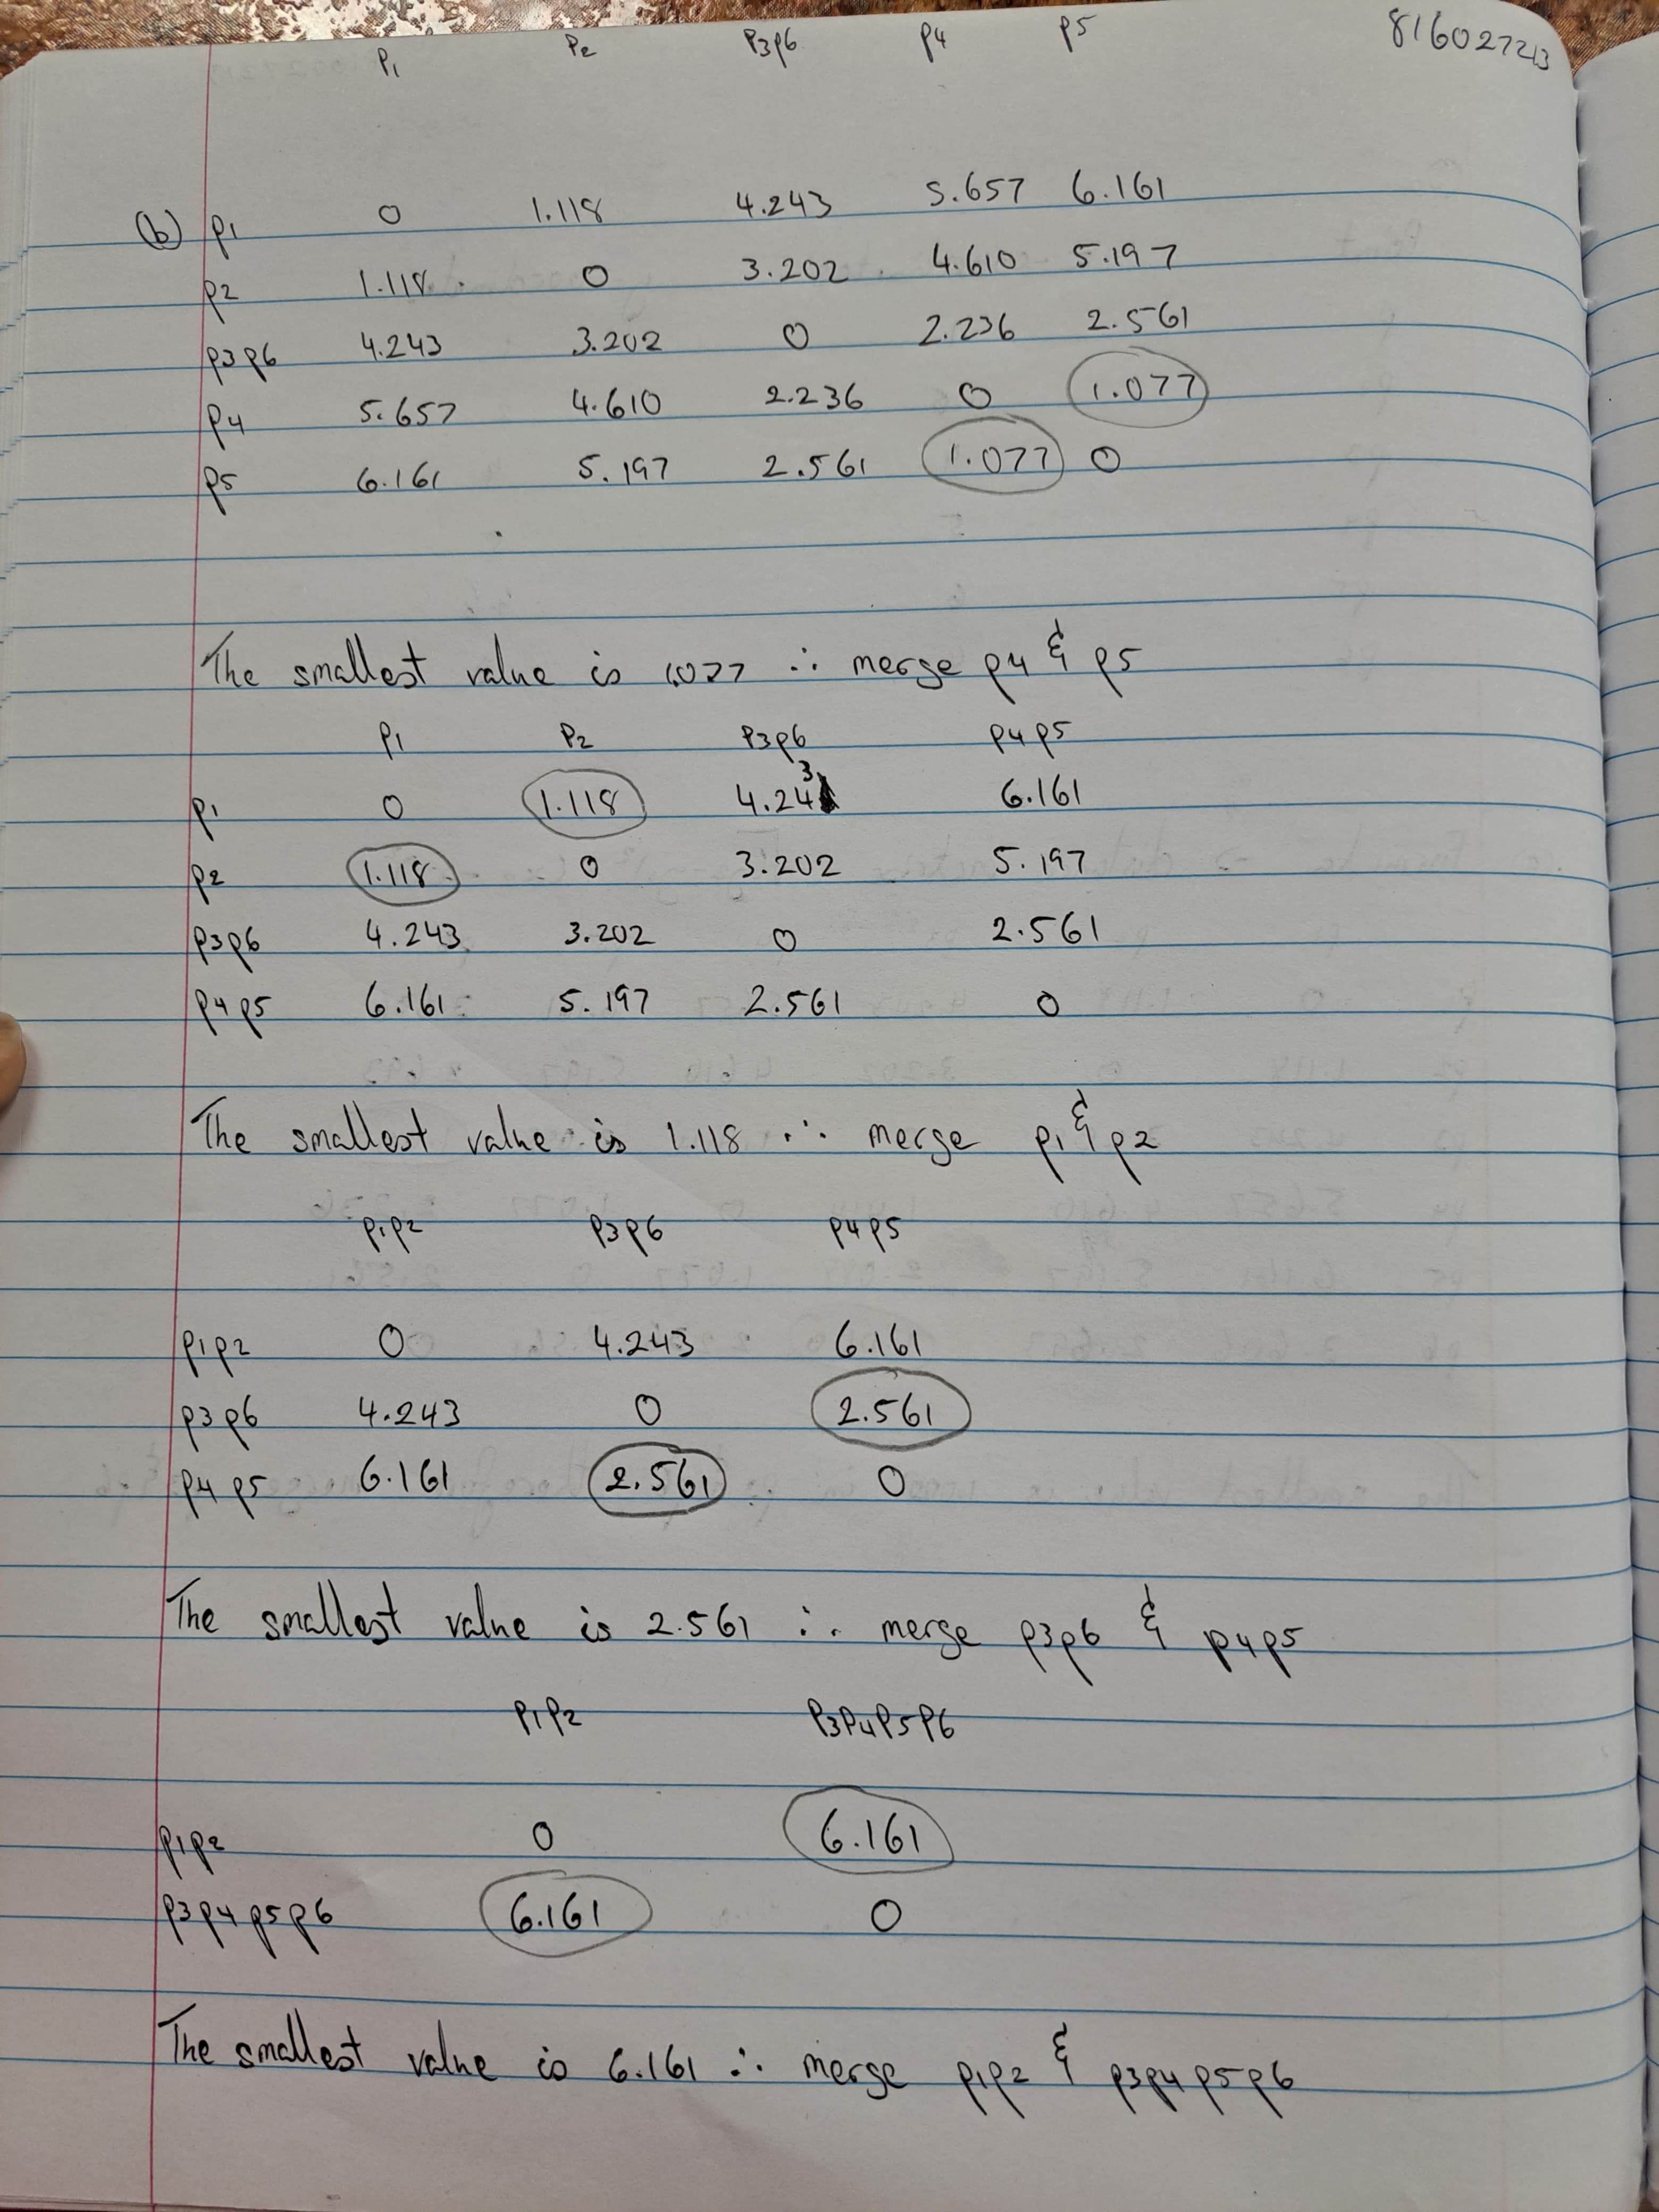 816027213
P1 P2 P3p6 p4 p5
(b) p1 0 1.118 4.243 5.657 6.161
p2 1.118 0 3.202 4.610 5.197
p3p6 4.243 3.202 0 2.236 2.561
p4 5.657 4.610 2.236 0 1.077
p5 6.161 5.197 2.561 1.077 0
The smallest value is 1.077 ∴ merge p4 & p5
P1 P2 P3p6 p4p5
p1 0 1.118 4.243 6.161
p2 1.118 0 3.202 5.197
p3p6 4.243 3.202 0 2.561
p4p5 6.161 5.197 2.561 0
The smallest value is 1.118 ∴ merge p1 & p2
p1p2 p3p6 p4p5
p1p2 0 4.243 6.161
p3p6 4.243 0 2.561
p4p5 6.161 2.561 0
The smallest value is 2.561 ∴ merge p3p6 & p4p5
P1P2 P3P4P5P6
p1p2 0 6.161
p3p4p5p6 6.161 0
The smallest value is 6.161 ∴ merge p1p2 & p3p4p5p6